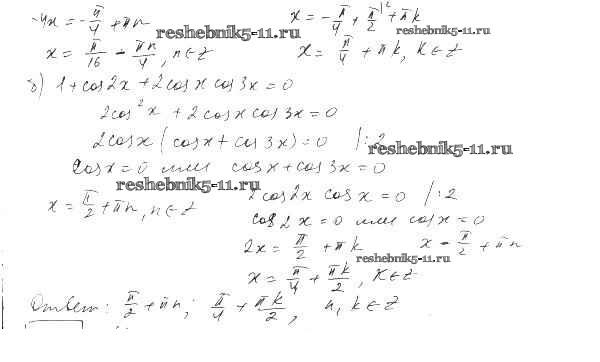 -4x = -π/4 + πn
x = π/16 - πn/4, n∈Z
x = -π/4 + π/2 + πk
x = π/4 + πk, k∈Z
reshebnik5-11.ru
reshebnik5-11.ru
б) 1+cos2x+2cosx cos3x=0
2cos²x + 2cosx cos3x=0
2cosx (cosx+cos3x)=0 /:2
reshebnik5-11.ru
cosx=0 или cosx+cos3x=0
reshebnik5-11.ru
x = π/2 + πn, n∈Z
2cos2x cosx=0 /:2
cos2x=0 или cosx=0
2x = π/2 + πk
x = π/2 + πn
reshebnik5-11.ru
x = π/4 + πk/2, k∈Z
Ответ: π/2 + πn; π/4 + πk/2, n, k∈Z